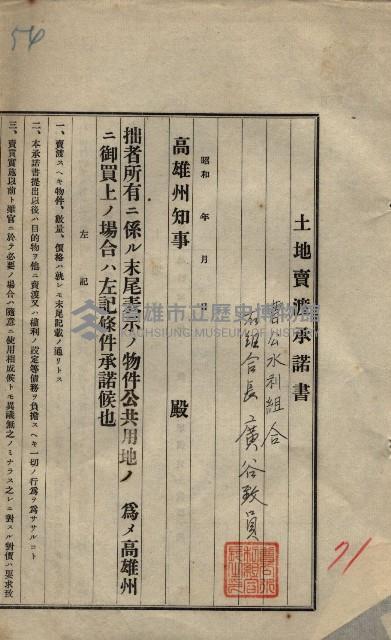 54
土地賣渡承諾書
曹公水利組合
右組合長 廣谷致員
21
昭和 年 月 日
高雄州知事 殿
拙者所有ニ係ル末尾表示ノ物件公共用地ノ 爲メ高雄州
ニ御買上ノ場合ハ左記條件承諾候也
左記
一、賣渡スヘキ物件、數量、價格ハ就レモ末尾記載ノ通リトス
二、本承諾書提出以後ハ目的物ヲ他ニ賣渡又ハ權利ノ設定等債務ヲ負擔スヘキ一切ノ行爲ヲ爲ササルコト
三、賣買實施以前ト雖官ニ於テ必要ノ場合ハ隨意ニ使用相成候トモ異議無之ノミナラス之レニ對スル對價ハ要求致
高雄市立歷史博物館
KAOHSIUNG MUSEUM OF HISTORY